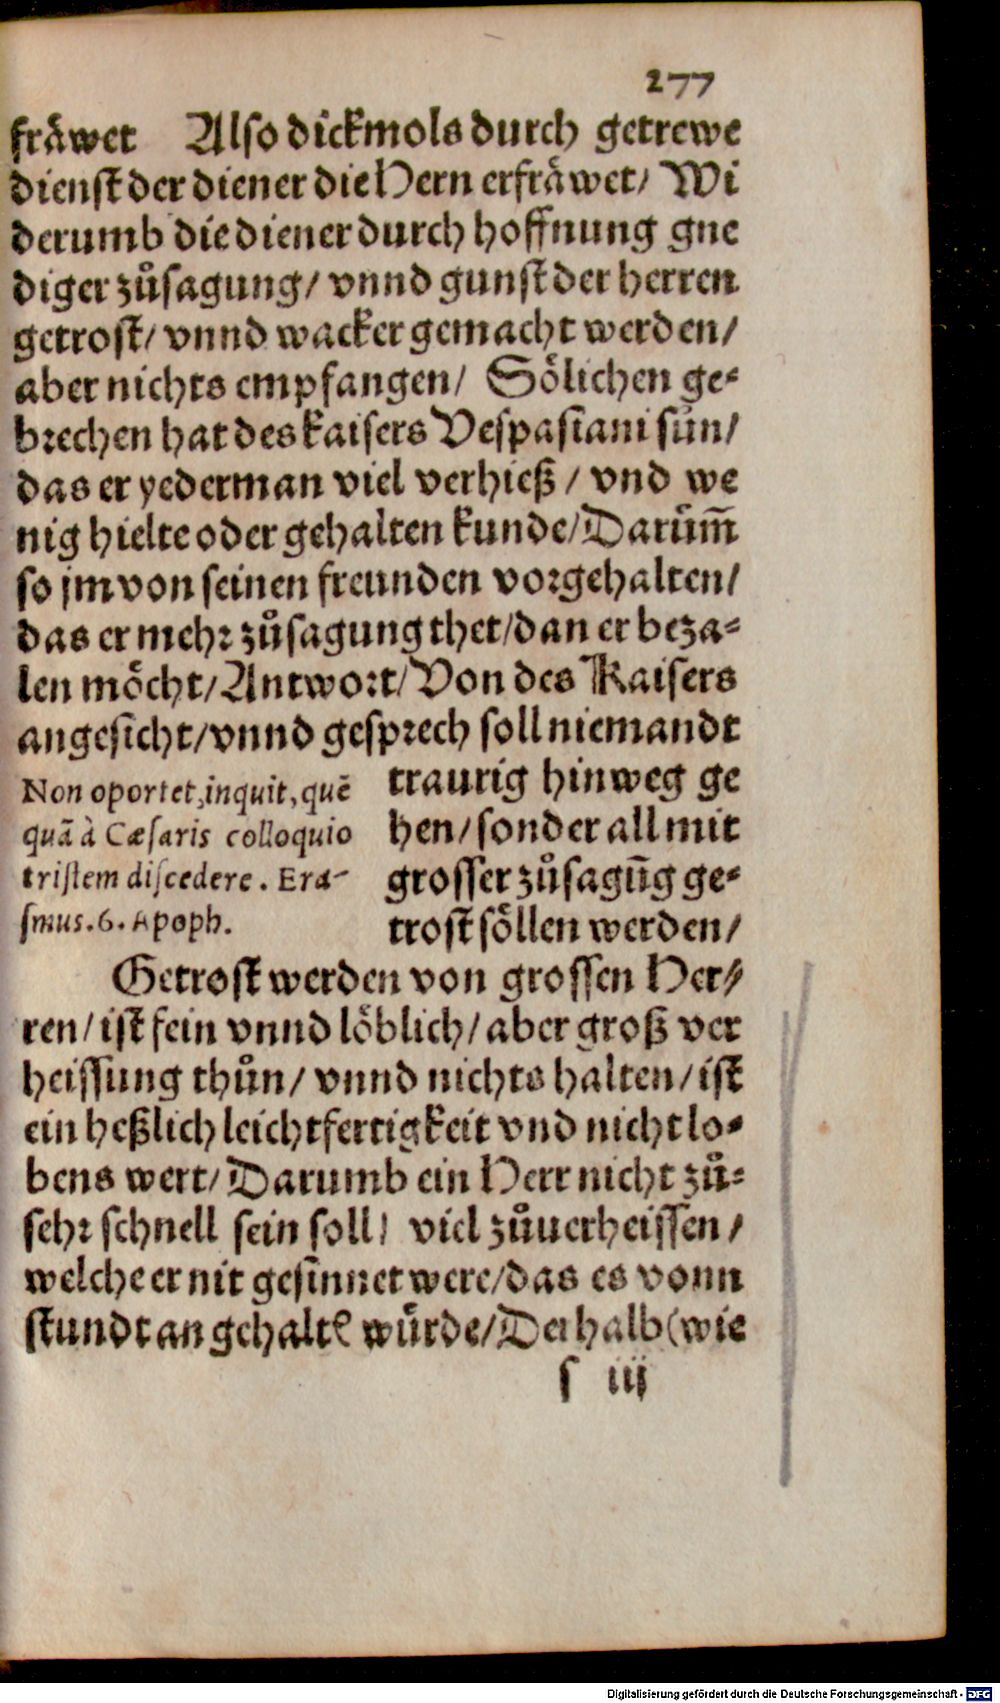 277
fräwet Also dickmols durch getrewe
dienst der diener die Hern erfräwet/ Wi
derumb die diener durch hoffnung gne
diger zůsagung/ vnnd gunst der herren
getrost/ vnnd wacker gemacht werden/
aber nichts empfangen/ Sölichen ge-
brechen hat des kaisers Vespasiani sůn/
das er yederman viel verhieß/ vnd we
nig hielte oder gehalten kunde/ Darům̄
so jm von seinen freunden vorgehalten/
das er mehr zůsagung thet/ dan er beza-
len möcht/ Antwort/ Von des Kaisers
angesicht/ vnnd gesprech soll niemandt
traurig hinweg ge
hen/ sonder all mit
grosser zůsagūg ge-
trost söllen werden/
Non oportet, inquit, quē
quā à Cæsaris colloquio
tristem discedere. Era-
smus. 6. Apoph.
Getrost werden von grossen Her-
ren/ ist fein vnnd löblich/ aber groß ver
heissung thůn/ vnnd nichts halten/ ist
ein heßlich leichtfertigkeit vnd nicht lo-
bens wert/ Darumb ein Herr nicht zů-
sehr schnell sein soll/ viel zůuerheissen/
welche er nit gesinnet were/ das es vonn
stundt an gehaltē würde/ Derhalb (wie
s iij
Digitalisierung gefördert durch die Deutsche Forschungsgemeinschaft - DFG